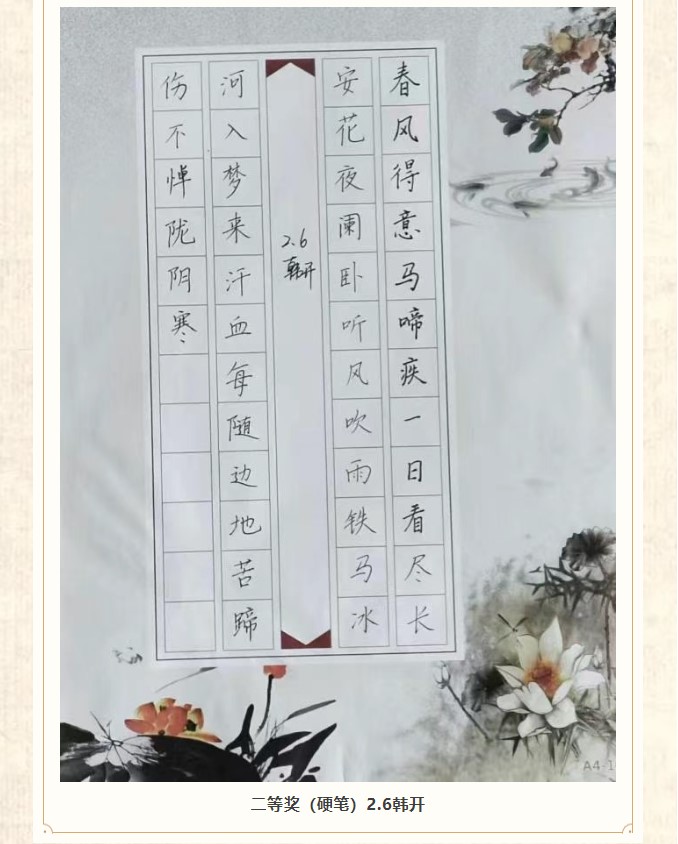 春风得意马啼疾一日看尽长
安花夜阑卧听风吹雨铁马冰
2.6
韩开
河入梦来汗血每随边地苦蹄
伤不惮陇阴寒
A4-1
二等奖（硬笔）2.6韩开